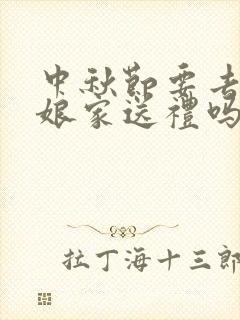 中秋節要去
娘家送禮嗎
拉丁海十三郎